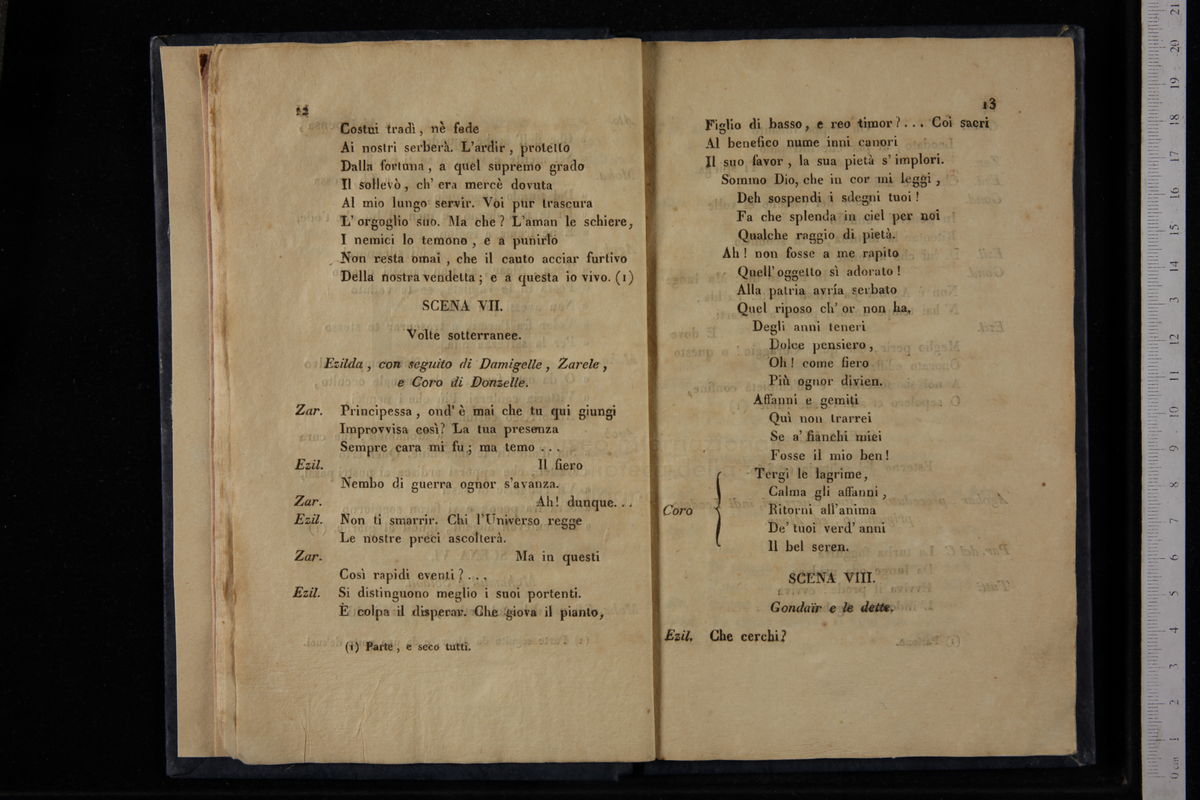 12
Costui tradì, nè fede
Ai nostri serberà. L'ardir, protetto
Dalla fortuna, a quel supremo grado
Il sollevò, ch' era mercè dovuta
Al mio lungo servir. Voi pur trascura
L' orgoglio suo. Ma che? L'aman le schiere,
I nemici lo temono, e a punirlo
Non resta omai, che il cauto acciar furtivo
Della nostra vendetta; e a questa io vivo. (1)
SCENA VII.
Volte sotterranee.
Ezilda, con seguito di Damigelle, Zarele,
e Coro di Donzelle.
Zar. Principessa, ond' è mai che tu quì giungi
Improvvisa così? La tua presenza
Sempre cara mi fu; ma temo . . .
Ezil. Il fiero
Nembo di guerra ognor s'avanza.
Zar. Ah! dunque. . .
Ezil. Non ti smarrir. Chi l'Universo regge
Le nostre preci ascolterà.
Zar. Ma in questi
Così rapidi eventi? . . .
Ezil. Si distinguono meglio i suoi portenti.
È colpa il disperar. Che giova il pianto,
(1) Parte, e seco tutti.
13
Figlio di basso, e reo timor? . . . Coi sacri
Al benefico nume inni canori
Il suo favor, la sua pietà s' implori.
Sommo Dio, che in cor mi leggi,
Deh sospendi i sdegni tuoi!
Fa che splenda in ciel per noi
Qualche raggio di pietà.
Ah! non fosse a me rapito
Quell' oggetto sì adorato!
Alla patria avría serbato
Quel riposo ch' or non ha,
Degli anni teneri
Dolce pensiero,
Oh! come fiero
Più ognor divien.
Affanni e gemiti
Quì non trarrei
Se a' fianchi miei
Fosse il mio ben!
Tergi le lagrime,
Calma gli affanni,
Coro Ritorni all'anima
De' tuoi verd' anni
Il bel seren.
SCENA VIII.
Gondaïr e le dette.
Ezil. Che cerchi?
0 cm 1 2 3 4 5 6 7 8 9 10 11 12 13 14 15 16 17 18 19 20 21